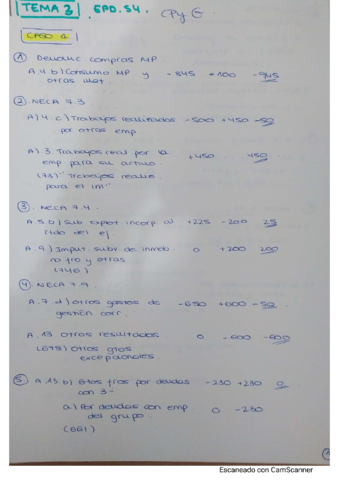 TEMA 3 EPD. S4 CPy G
CASO 1
① compras MP
A.4 b) Consumo MP y -845 +100 -945
otras mat.
② NECA 7.3
A) 4. c) Trabajos realizados -500 +450 -50
por otras emp
A) 3. Trabajos real por la +450 450
emp para su activo
(73) "Trabajos realiz
para el inm"
③ NECA 7.4
A.5.b) Sub explot incorp al +225 -200 25
rtdo del ej.
A.9) Imput. subv de inmov 0 +200 200
no fro y otras
(746)
④ NECA 7.9
A.7. d) otros gastos de -650 +600 -50
gestión corr.
A.13 otros resultados 0 -600 -600
(678) otros gtos
excepcionales
⑤ A 13. b) Gtos fros por deudas -230 +230 0
con 3
a) Por deudas con emp 0 -230
del grupo.
(661)
Escaneado con CamScanner